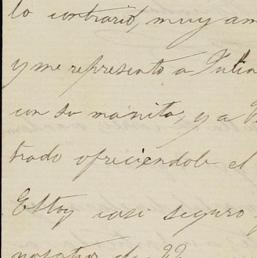 lo contrario, muy am
y me represento a
con su manita, y a
trado ofreciendole el
Estoy casi seguro
nosotros de